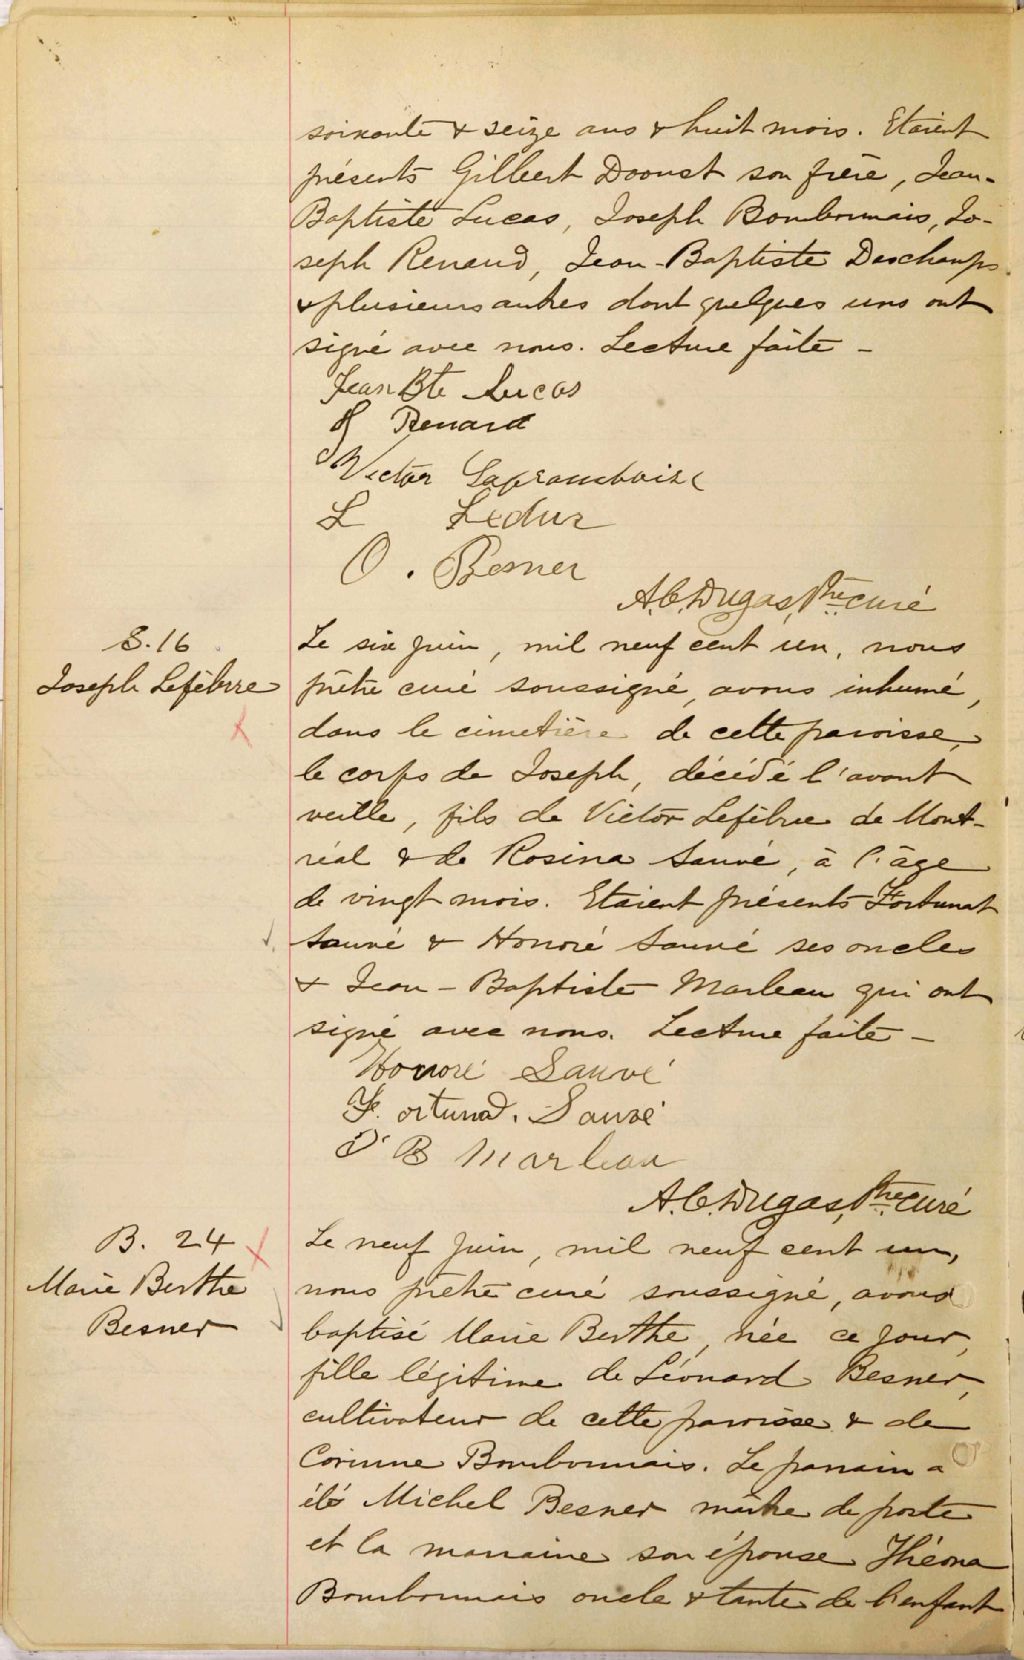 soixante & seize ans & huit mois. Etaient
présents Gilbert Daoust son frère, Jean-
Baptiste Lucas, Joseph Bourbonnais, Jo-
seph Renaud, Jean-Baptiste Deschamps
& plusieurs autres dont quelques uns ont
signé avec nous. Lecture faite -
Jean Bte Lucas
J Renard
Victor Laframboise
L Leduc
O. Besner
A.C. Dugas, Ptre curé
S. 16
Joseph Lefèbvre
Le six juin, mil neuf cent un, nous
prêtre curé soussigné, avons inhumé,
dans le cimetière de cette paroisse,
le corps de Joseph, décédé l'avant
veille, fils de Victor Lefèbvre de Mont-
réal & de Rosina Sauvé, à l'âge
de vingt mois. Etaient présents Fortunat
Sauvé & Honoré Sauvé ses oncles
& Jean-Baptiste Marleau qui ont
signé avec nous. Lecture faite -
Honoré Sauvé
Fortunad. Sauvé
J B Marleau
A.C. Dugas, Ptre curé
B. 24
Marie Berthe
Besner
Le neuf juin, mil neuf cent un,
nous prêtre curé soussigné, avons
baptisé Marie Berthe, née ce jour,
fille légitime de Léonard Besner,
cultivateur de cette paroisse & de
Corinne Bourbonnais. Le parrain a
été Michel Besner maître de poste
et la marraine son épouse Théona
Bourbonnais oncle & tante de l'enfant